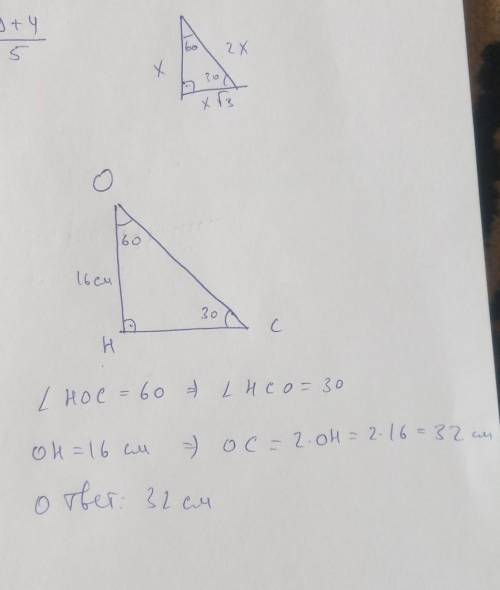 + 4
5
60
2x
x
30
x√3
O
60
16 см
30
H
C
∠ HOC = 60 ⇒ ∠ HCO = 30
OH = 16 см ⇒ OC = 2·OH = 2·16 = 32 см
Ответ: 32 см